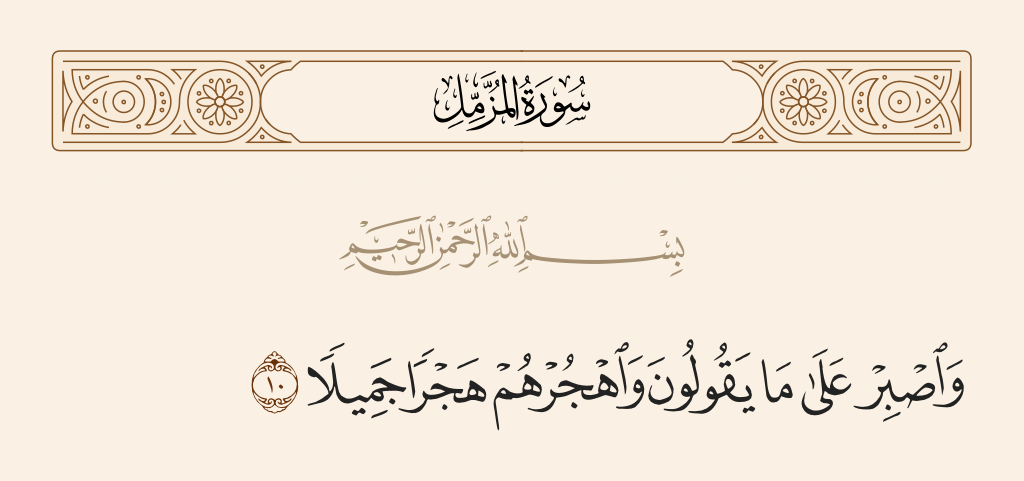 سُورَةُ الْمُزَّمِّلِ
بِسْمِ ٱللَّهِ ٱلرَّحْمَٰنِ ٱلرَّحِيمِ
وَٱصْبِرْ عَلَىٰ مَا يَقُولُونَ وَٱهْجُرْهُمْ هَجْرًا جَمِيلًا ١٠